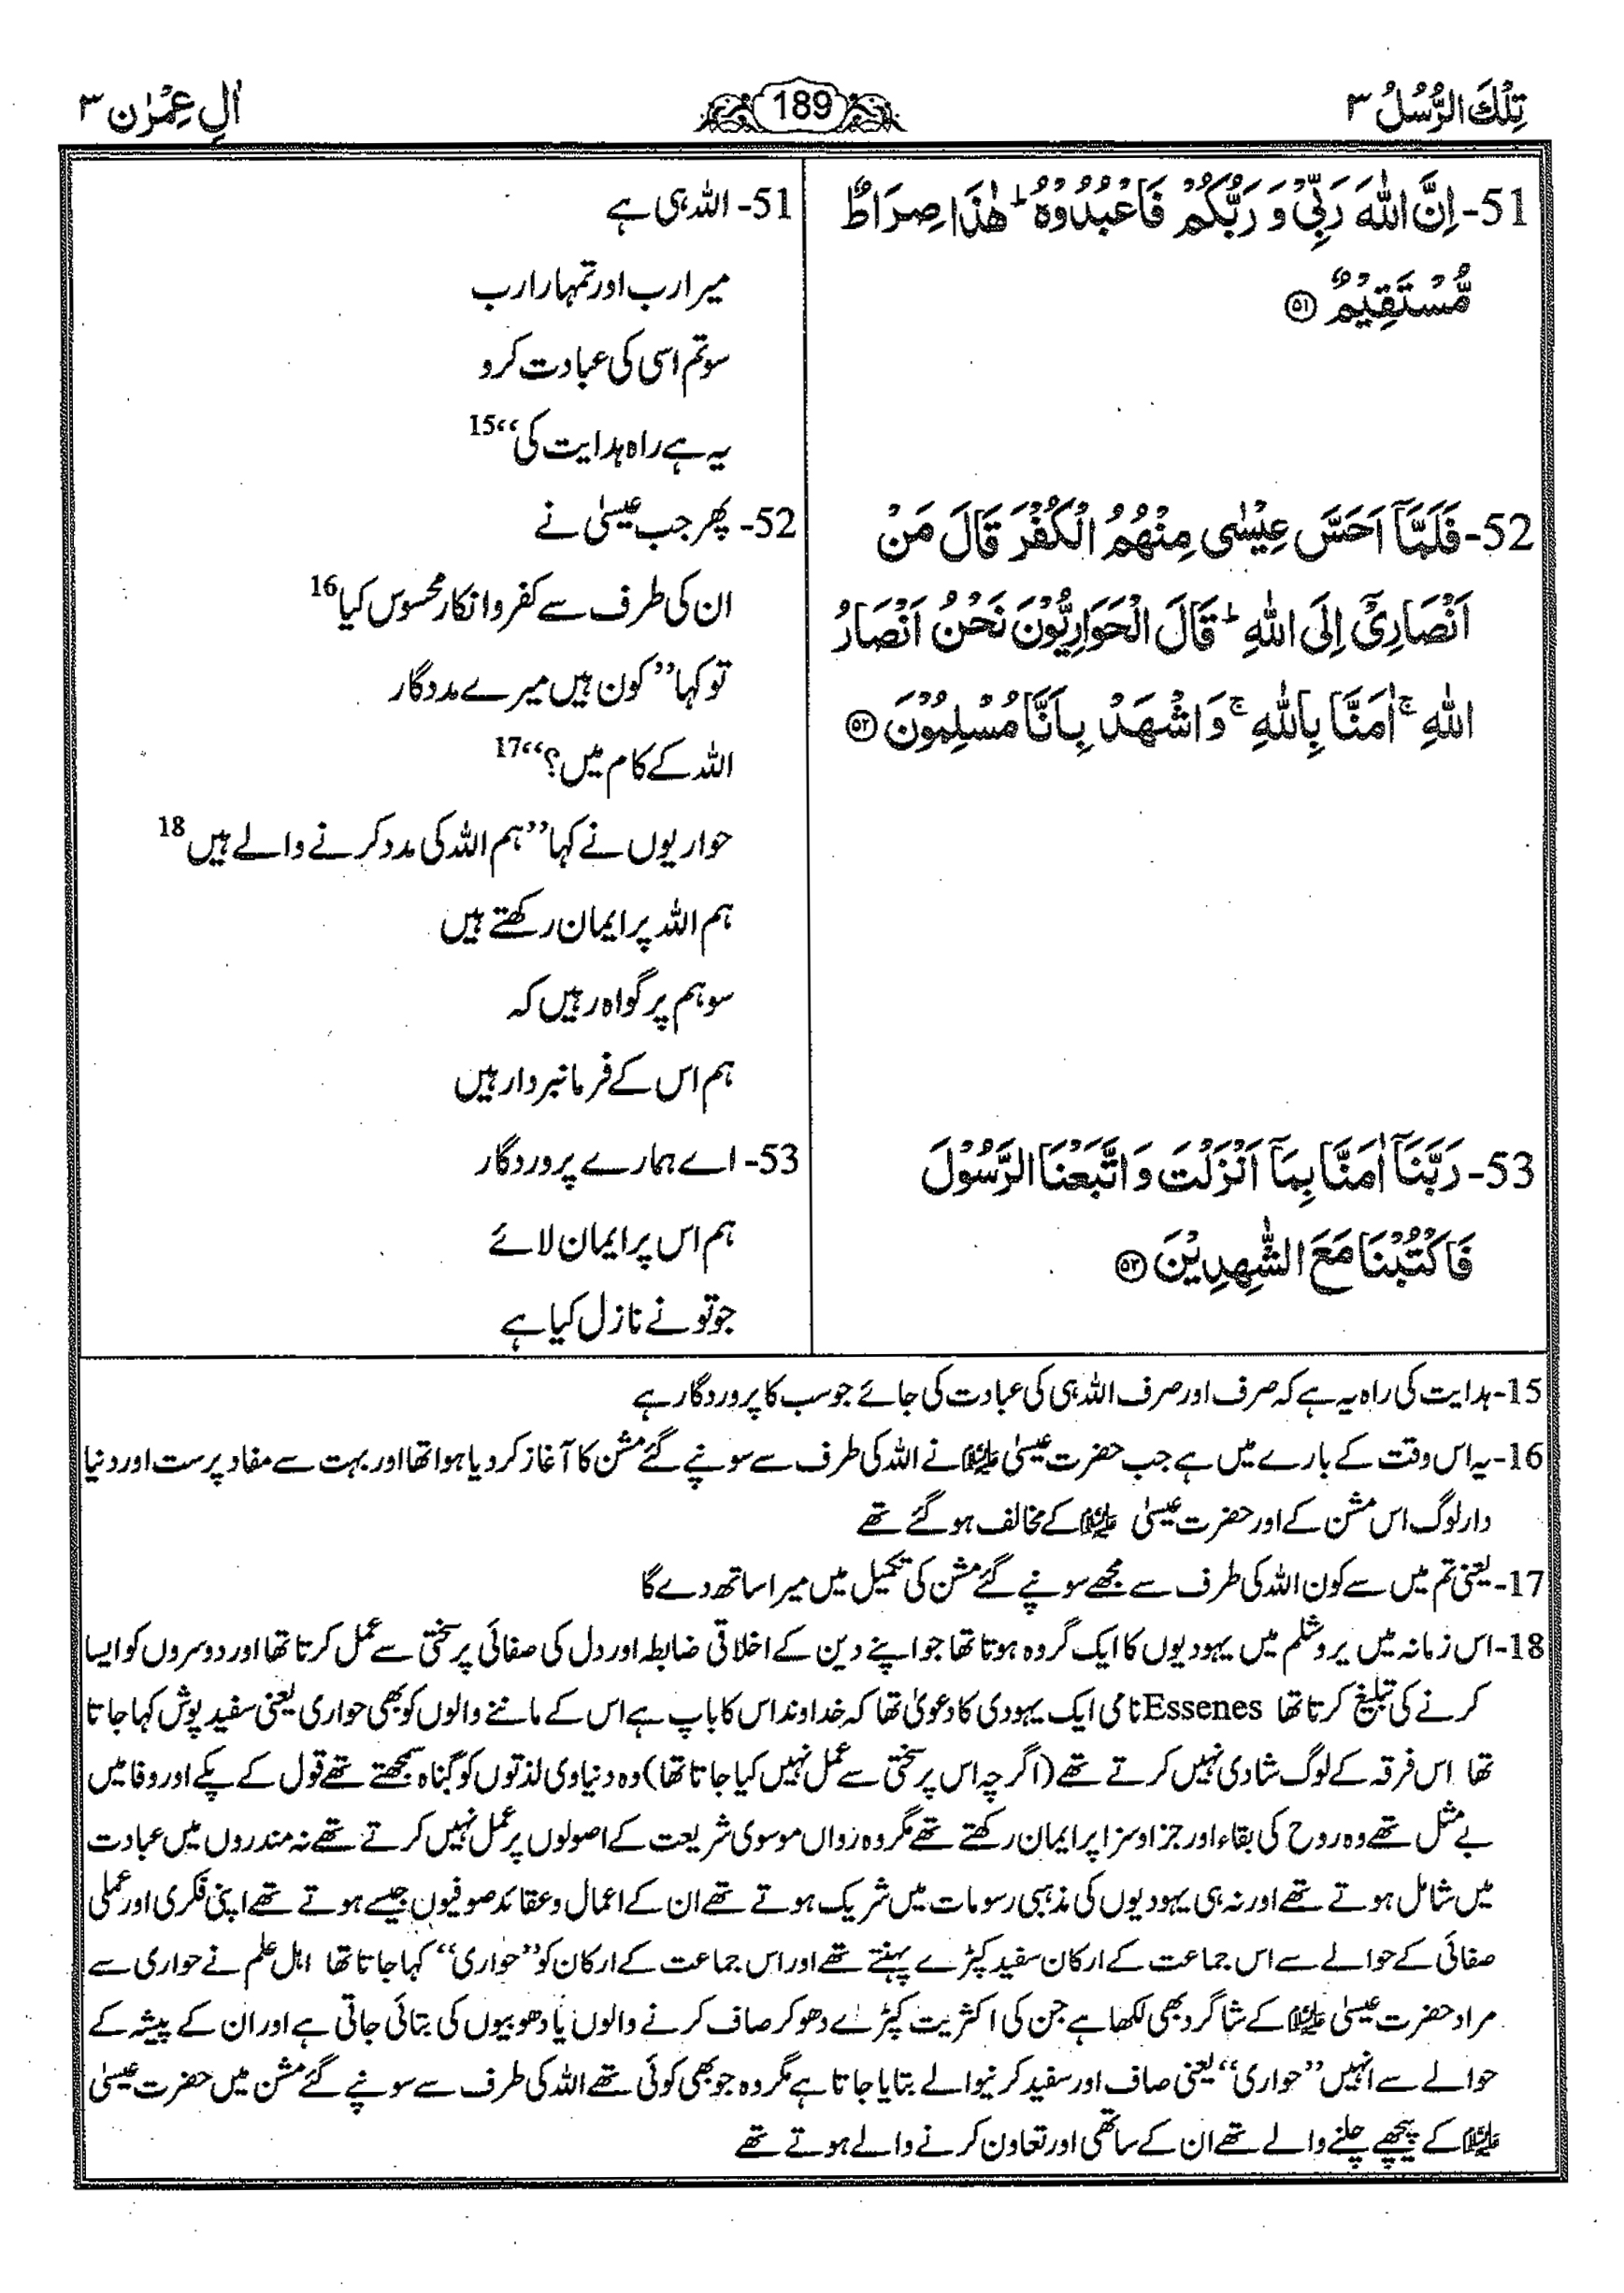 تِلْكَ الرُّسُلُ ۳
189
اٰلِ عِمْرٰن ۳
51- اِنَّ اللّٰهَ رَبِّیْ وَ رَبُّكُمْ فَاعْبُدُوْهُ ؕ هٰذَا صِرَاطٌ
مُّسْتَقِیْمٌ ۝۵۱
52- فَلَمَّاۤ اَحَسَّ عِیْسٰی مِنْهُمُ الْكُفْرَ قَالَ مَنْ
اَنْصَارِیْۤ اِلَی اللّٰهِ ؕ قَالَ الْحَوَارِیُّوْنَ نَحْنُ اَنْصَارُ
اللّٰهِ ۚ اٰمَنَّا بِاللّٰهِ ۚ وَ اشْهَدْ بِاَنَّا مُسْلِمُوْنَ ۝۵۲
53- رَبَّنَاۤ اٰمَنَّا بِمَاۤ اَنْزَلْتَ وَ اتَّبَعْنَا الرَّسُوْلَ
فَاكْتُبْنَا مَعَ الشّٰهِدِیْنَ ۝۵۳
51- اللہ ہی ہے
میرا رب اور تمہارا رب
سو تم اسی کی عبادت کرو
یہ ہے راہ ہدایت کی‘‘15
52- پھر جب عیسیٰ نے
ان کی طرف سے کفر و انکار محسوس کیا16
تو کہا ’’کون ہیں میرے مددگار
اللہ کے کام میں؟‘‘17
حواریوں نے کہا ’’ہم اللہ کی مدد کرنے والے ہیں18
ہم اللہ پر ایمان رکھتے ہیں
سو ہم پر گواہ رہیں کہ
ہم اس کے فرمانبردار ہیں
53- اے ہمارے پروردگار
ہم اس پر ایمان لائے
جو تو نے نازل کیا ہے
15- ہدایت کی راہ یہ ہے کہ صرف اور صرف اللہ ہی کی عبادت کی جائے جو سب کا پروردگار ہے
16- یہ اس وقت کے بارے میں ہے جب حضرت عیسیٰ علیہ السلام نے اللہ کی طرف سے سونپے گئے مشن کا آغاز کر دیا ہوا تھا اور بہت سے مفاد پرست اور دنیا
دار لوگ اس مشن کے اور حضرت عیسیٰ علیہ السلام کے مخالف ہو گئے تھے
17- یعنی تم میں سے کون اللہ کی طرف سے مجھے سونپے گئے مشن کی تکمیل میں میرا ساتھ دے گا
18- اس زمانہ میں یروشلم میں یہودیوں کا ایک گروہ ہوتا تھا جو اپنے دین کے اخلاقی ضابطہ اور دل کی صفائی پر سختی سے عمل کرتا تھا اور دوسروں کو ایسا
کرنے کی تبلیغ کرتا تھا Essenes نامی ایک یہودی کا دعویٰ تھا کہ خداوند اس کا باپ ہے اس کے ماننے والوں کو بھی حواری یعنی سفید پوش کہا جاتا
تھا اس فرقہ کے لوگ شادی نہیں کرتے تھے (اگرچہ اس پر سختی سے عمل نہیں کیا جاتا تھا) وہ دنیاوی لذتوں کو گناہ سمجھتے تھے قول کے پکے اور وفا میں
بے مثل تھے وہ روح کی بقاء اور جزا و سزا پر ایمان رکھتے تھے مگر وہ رواں موسوی شریعت کے اصولوں پر عمل نہیں کرتے تھے نہ مندروں میں عبادت
میں شامل ہوتے تھے اور نہ ہی یہودیوں کی مذہبی رسومات میں شریک ہوتے تھے ان کے اعمال و عقائد صوفیوں جیسے ہوتے تھے اپنی فکری اور عملی
صفائی کے حوالے سے اس جماعت کے ارکان سفید کپڑے پہنتے تھے اور اس جماعت کے ارکان کو ’’حواری‘‘ کہا جاتا تھا اہل علم نے حواری سے
مراد حضرت عیسیٰ علیہ السلام کے شاگرد بھی لکھا ہے جن کی اکثریت کپڑے دھو کر صاف کرنے والوں یا دھوبیوں کی بتائی جاتی ہے اور ان کے پیشہ کے
حوالے سے انہیں ’’حواری‘‘ یعنی صاف اور سفید کرنیوالے بتایا جاتا ہے مگر وہ جو بھی کوئی تھے اللہ کی طرف سے سونپے گئے مشن میں حضرت عیسیٰ
علیہ السلام کے پیچھے چلنے والے تھے ان کے ساتھی اور تعاون کرنے والے ہوتے تھے